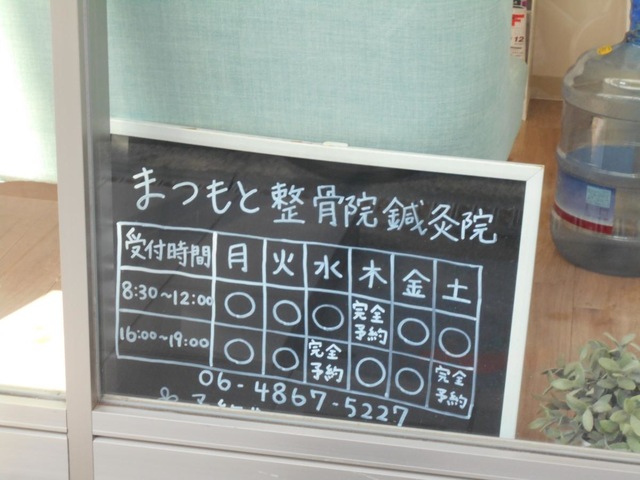 まつもと整骨院鍼灸院
受付時間 月 火 水 木 金 土
8:30~12:00 ○ ○ ○ 完全予約 ○ ○
16:00~19:00 ○ ○ 完全予約 ○ ○ 完全予約
06-4867-5227